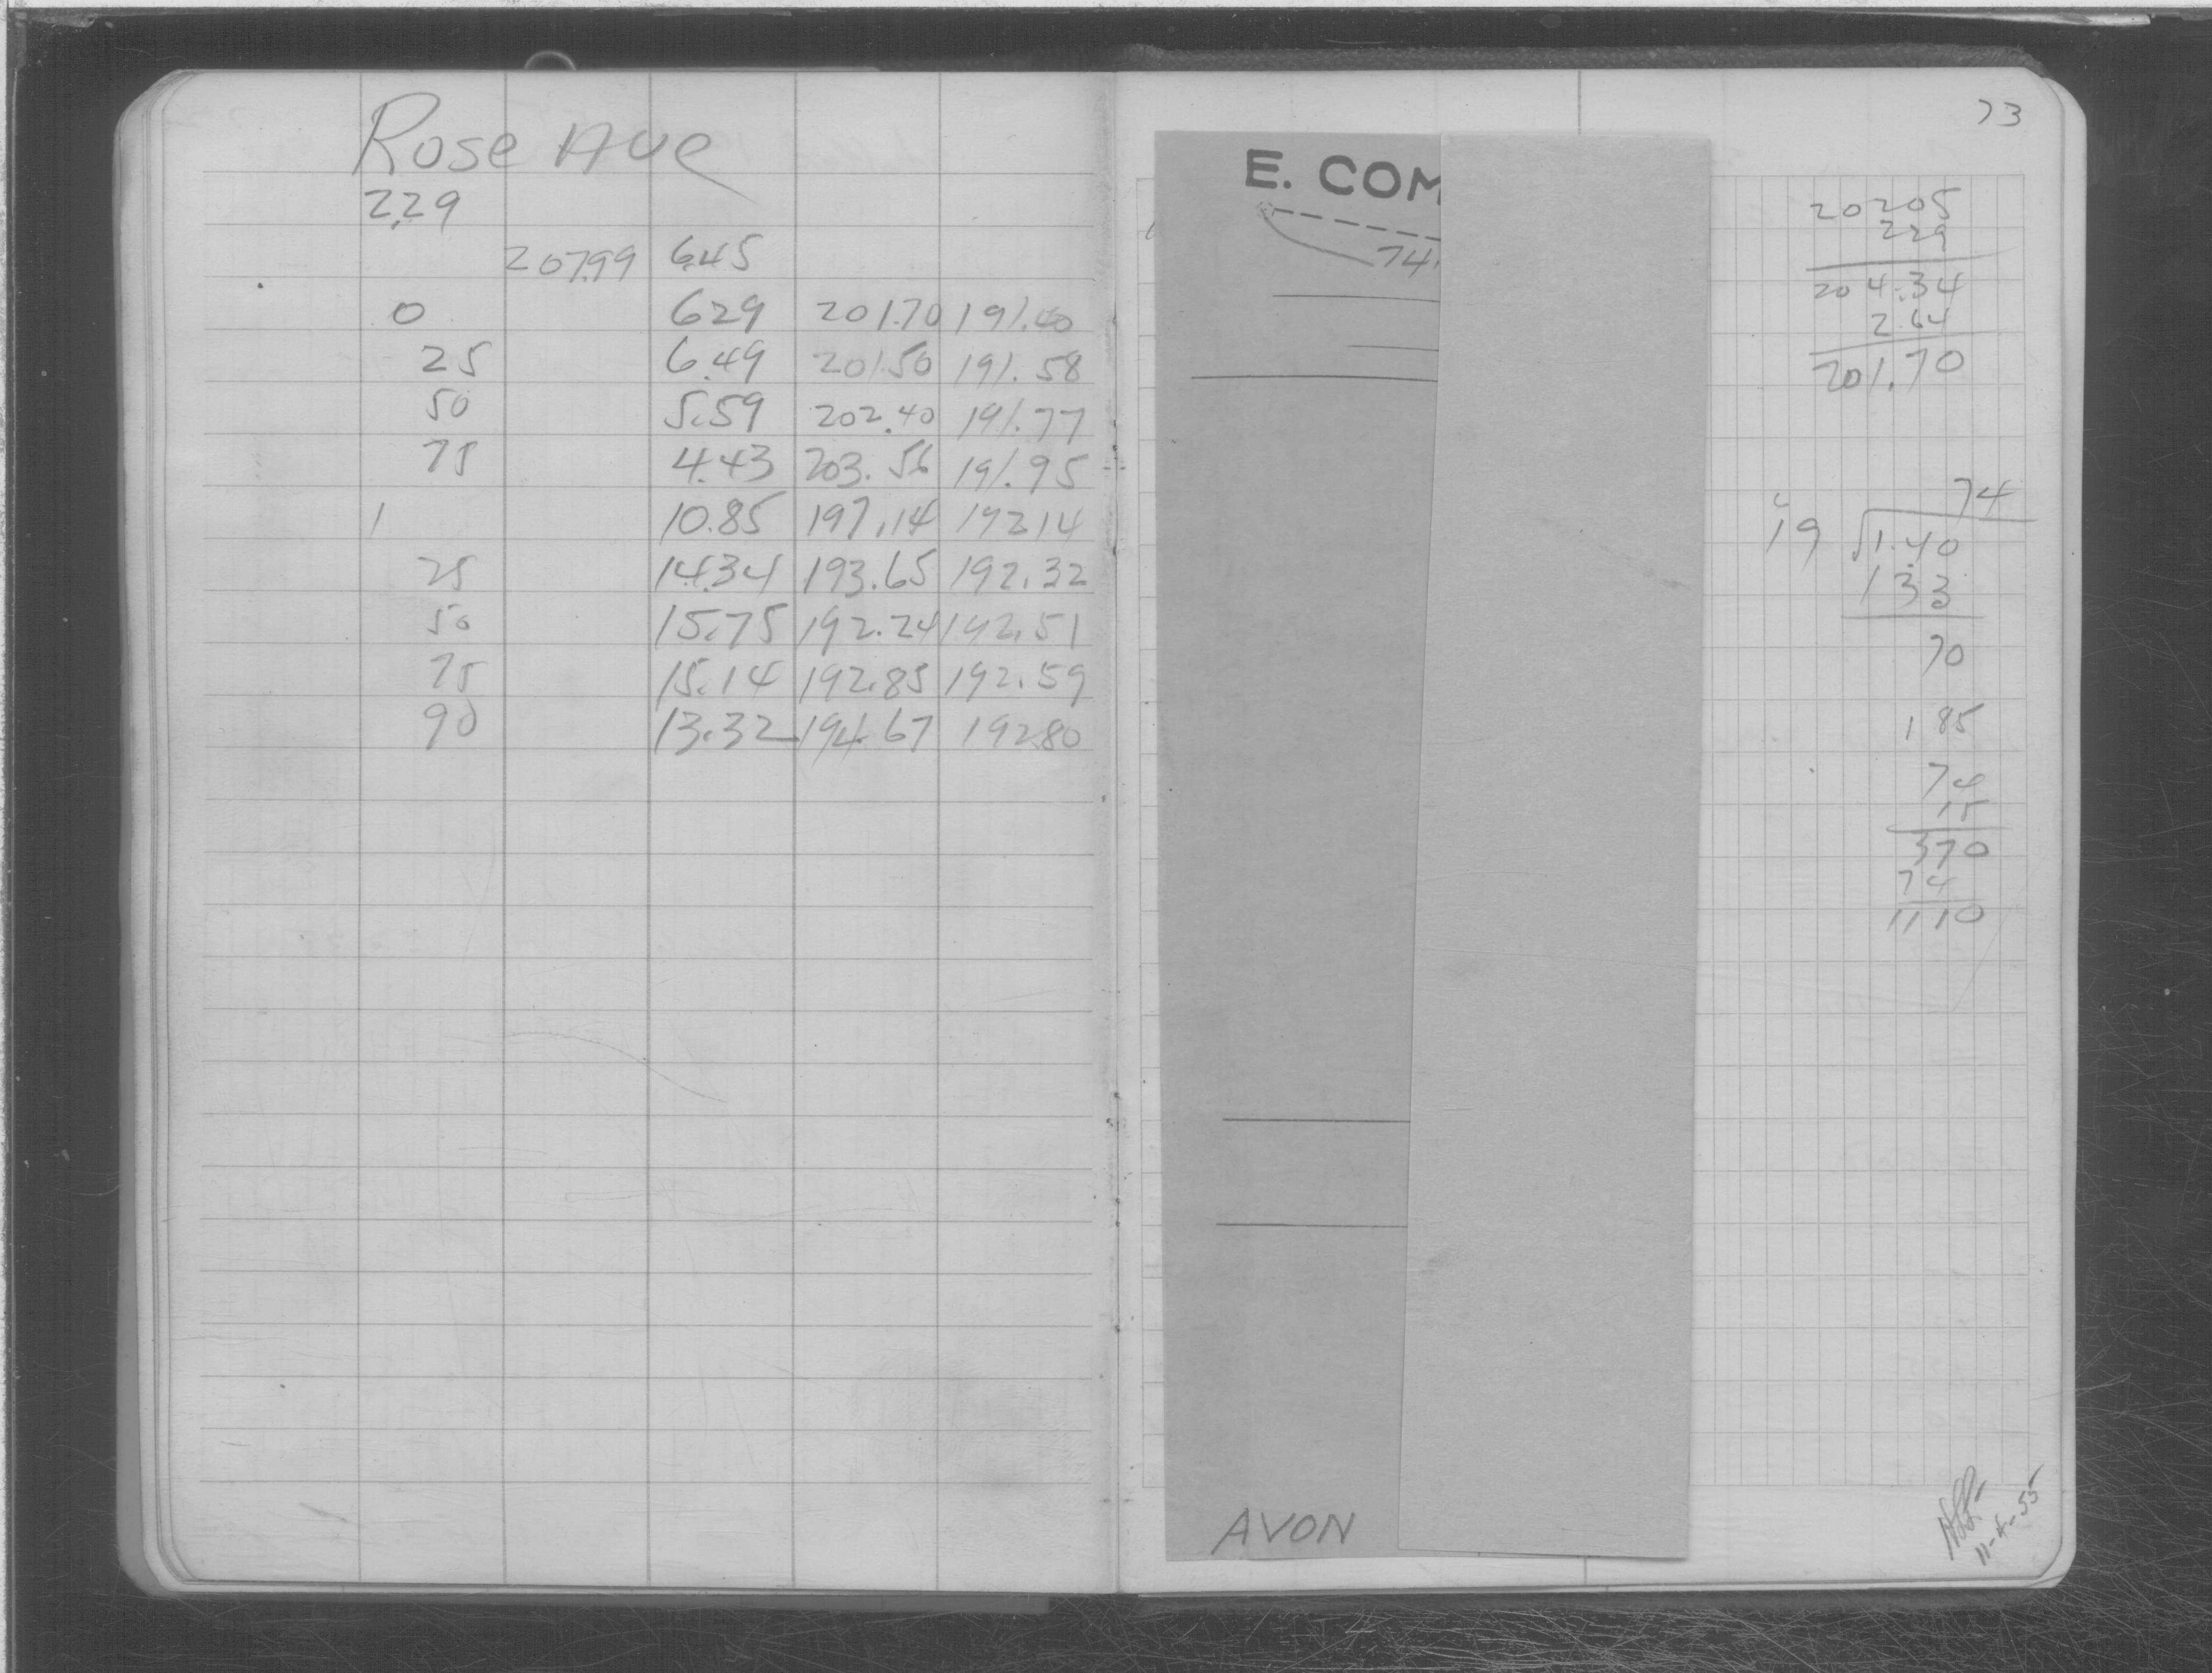 Rose Ave
2.29
207.99 6.45
0 6.29 201.70 191.40
25 6.49 201.50 191.58
50 5.59 202.40 191.77
75 4.43 203.56 191.95
1 10.85 197.14 192.14
25 14.34 193.65 192.32
50 15.75 192.24 192.51
75 15.14 192.85 192.59
90 13.32 194.67 192.80
73
E. COM
74
AVON
20205
229
204.34
2.64
201.70
74
19 1.40
133
70
1 85
74
15
370
74
1110
11-4-55